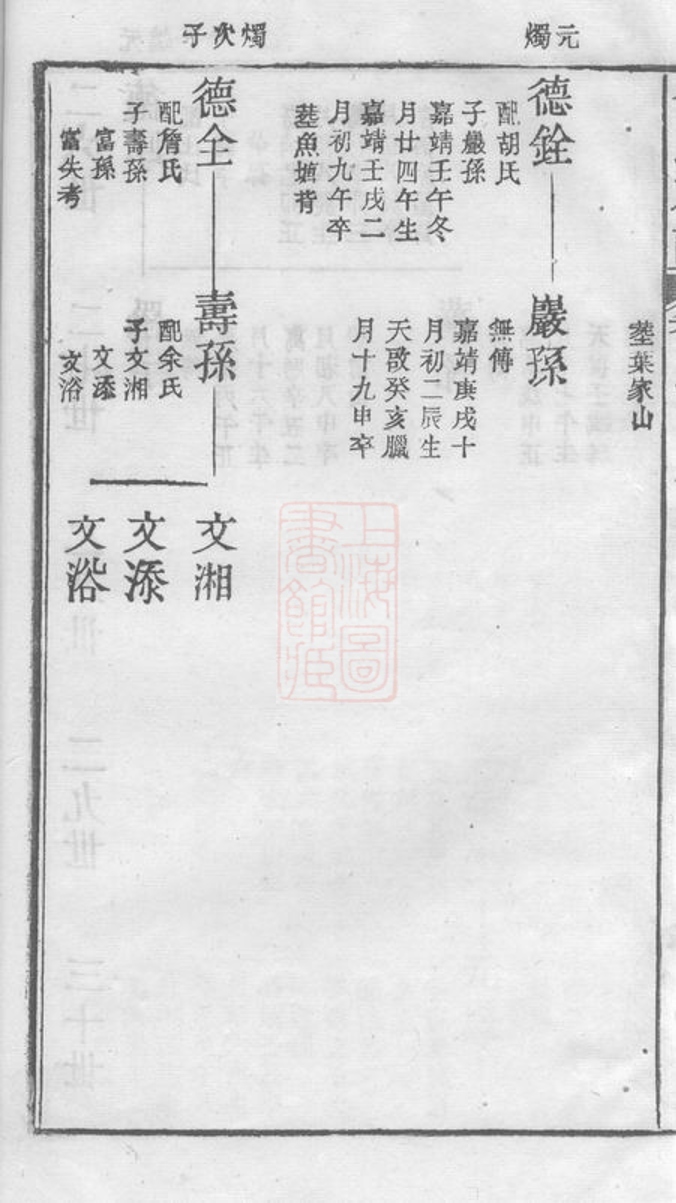 元燭
燭次子
塟葉家山
德銓
配胡氏
子嚴孫
嘉靖壬午冬
月廿四午生
嘉靖壬戌二
月初九午卒
塟魚埴背
巖孫
無傳
嘉靖庚戌十
月初二辰生
天啟癸亥臘
月十九申卒
德全
配詹氏
子壽孫
富孫
富失考
壽孫
配余氏
子文湘
文添
文浴
文湘
文添
文浴
上海圖
書館藏